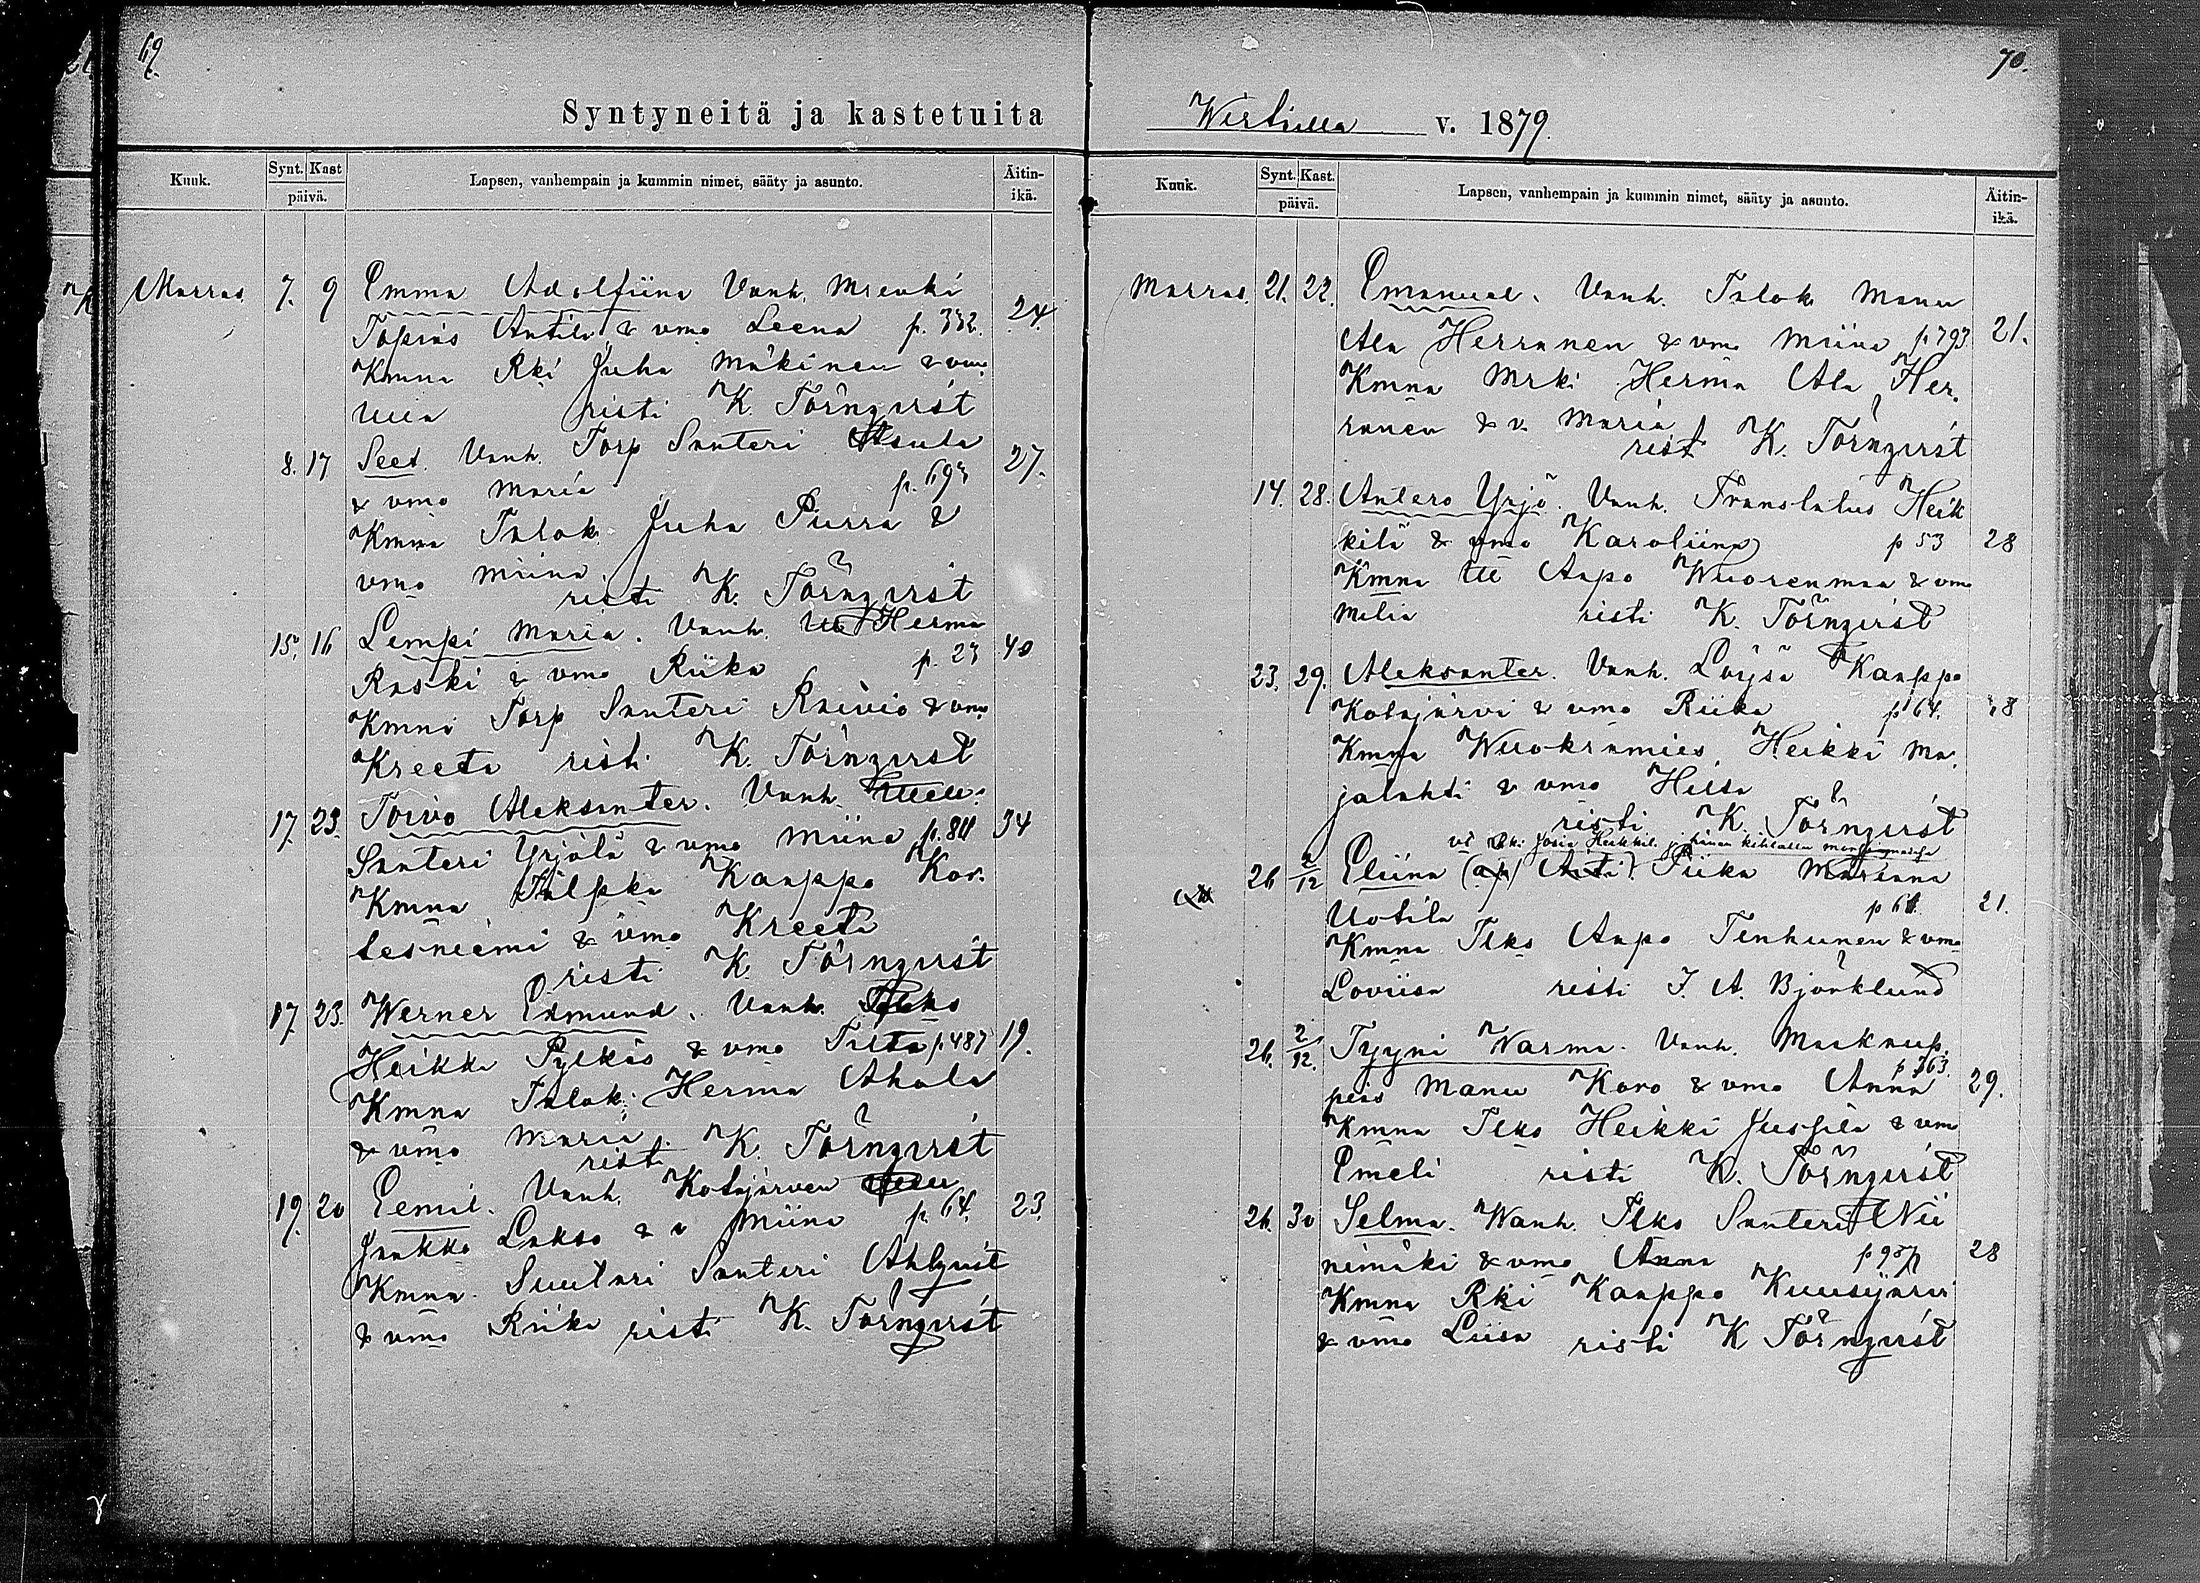 69.
Syntyneitä ja kastetuita
Kuuk. Synt. Kast päivä. Lapsen, vanhempain ja kummin nimet, sääty ja asunto. Äitin-ikä.
Marras. 7. 9 Emma Adolfiina Vanh.
Topias Antila & vmo Leena p. 332. 24.
Kmna Rki Juha Mäkinen & vmo
risti K. Törnqvist
8. 17 Seet. Vanh. Torp Santeri
& vmo Maria 27.
Kmna Talok. Juha Purra &
vmo Miina.
risti K. Törnqvist
15. 16 Lempi Maria. Vanh. Herma
Raski & vmo Riika p. 23 40
Kmna Torp Santeri Raivio & vmo
Kreeta risti K. Törnqvist
17. 23. Toivo Aleksanter. Vanh.
Santeri Yrjölä & vmo Miina 34
Kmna Kaappo Kor.
tesneemi & vmo Kreeta
risti K. Törnqvist
17. 23. Werner Edmund. Vanh.
Heikki Pylkäs & vmo p. 487 19.
Kmna Talok. Herma Ahola
& vmo Maria.
risti K. Törnqvist
19. 20 Eemil. Vanh. Kotajärven
Jaakko Lakso & v Miina p. 64. 23.
Kmna. Suutari Santeri Ahlqvist
& vmo Riika risti K. Törnqvist
70.
v. 1879.
Kuuk. Synt. Kast. päivä. Lapsen, vanhempain ja kummin nimet, sääty ja asunto. Äitin-ikä.
Marras. 21. 22. Emanuel. Vanh. Talok Manu
Ala Herranen & vmo Miina p. 793 21.
Kmna Mrki Herma Ala Her.
ranen & v. Maria
rist K. Törnqvist
14. 28. Antero Yrjö. Vanh. Translatus Heik
kilä & vmo Karoliina p 53 28
Kmna Aapo Wuorenmaa & vmo
Milia risti K. Törnqvist
23. 29. Aleksanter. Vanh. Löysä Kaappo
Kotajärvi & vmo Riika p 64.
Kmna Wuokramies Heikki Ma.
jalahti & vmo Hilta
risti K Törnqvist
26 2/12 Eliina (ap) Piika Marianna
Uotila 21.
Kmna Tlks Aapo Tenhunen & vmo
Loviisa risti J. A. Björklund
26. 2/12. Tyyni Warma. Vanh. Maakaup.
pias Manu Koro & vmo Anna 29.
Kmna Tlks Heikki Jussila & vmo
Emeli risti K. Törnqvist
26. 30 Selma. Wanh. Tlks Santeri Nii
nimäki & vmo Anna 28
Kmna Rki Kaappo Kuusijärvi
& vmo Liisa risti K Törnqvist